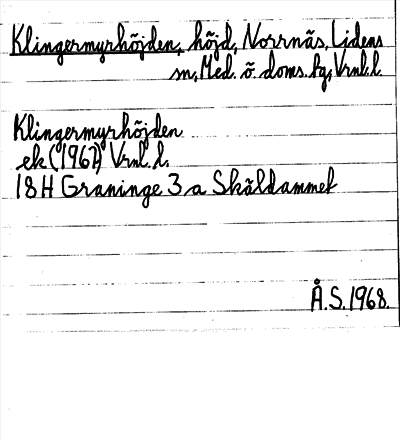 Klingermyrhöjden, höjd, Norrnäs, Lidens
sn, Med. ö. doms. fg, Vrnl. l.
Klingermyrhöjden
ek (1967) Vrnl. l.
18H Graninge 3 a Skäldammet
Å.S. 1968.